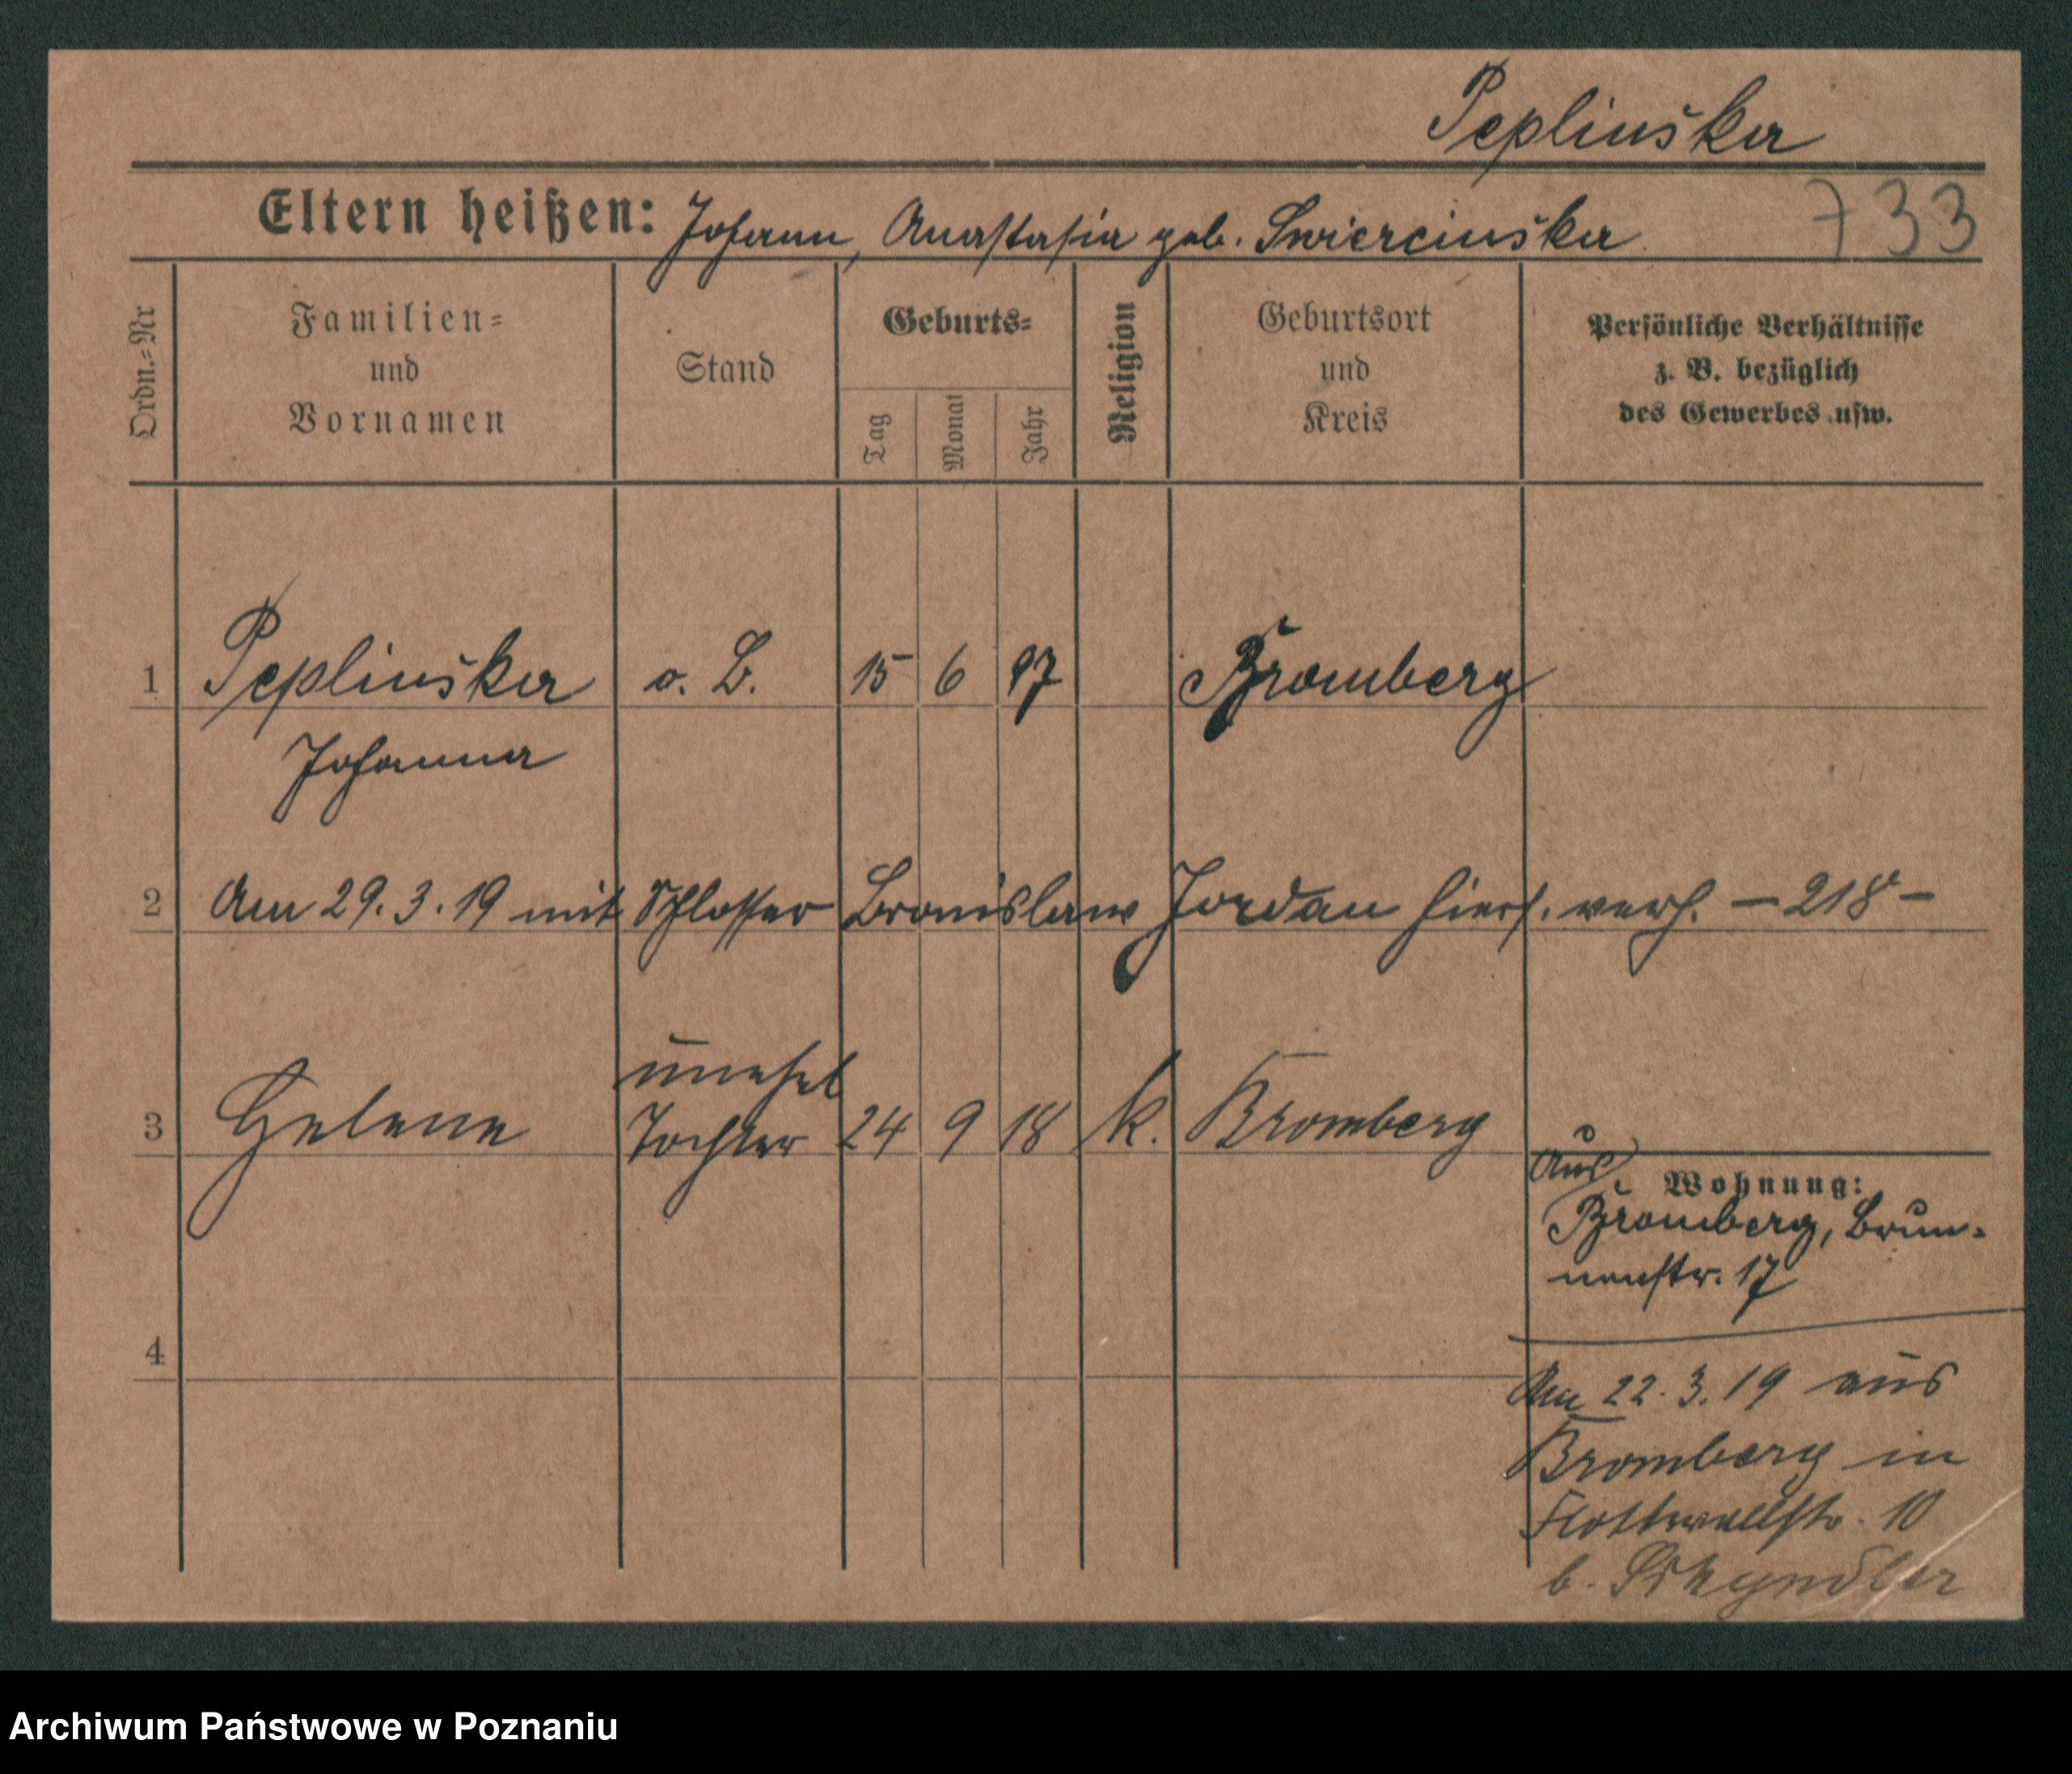 Peplinska
Eltern heißen: Johann, Anastasia geb. Swiercinska 733
Ordn.=Nr
Familien=
und
Vornamen
Stand
Geburts=
Tag
Monat
Jahr
Religion
Geburtsort
und
Kreis
Persönliche Verhältnisse
z. B. bezüglich
des Gewerbes usw.
1 Peplinska o. B. 15 6 97 Bromberg
Johanna
2 Am 29. 3. 19 mit Schlosser Bronislaw Jordan hiers. verh. – 218 –
unehel
3 Helene Tochter 24 9 18 k. Bromberg
Aus
Wohnung:
Bromberg, Brun-
nenstr. 17
4
Am 22. 3. 19 aus
Bromberg in
Flottwellstr. 10
b.
Archiwum Państwowe w Poznaniu